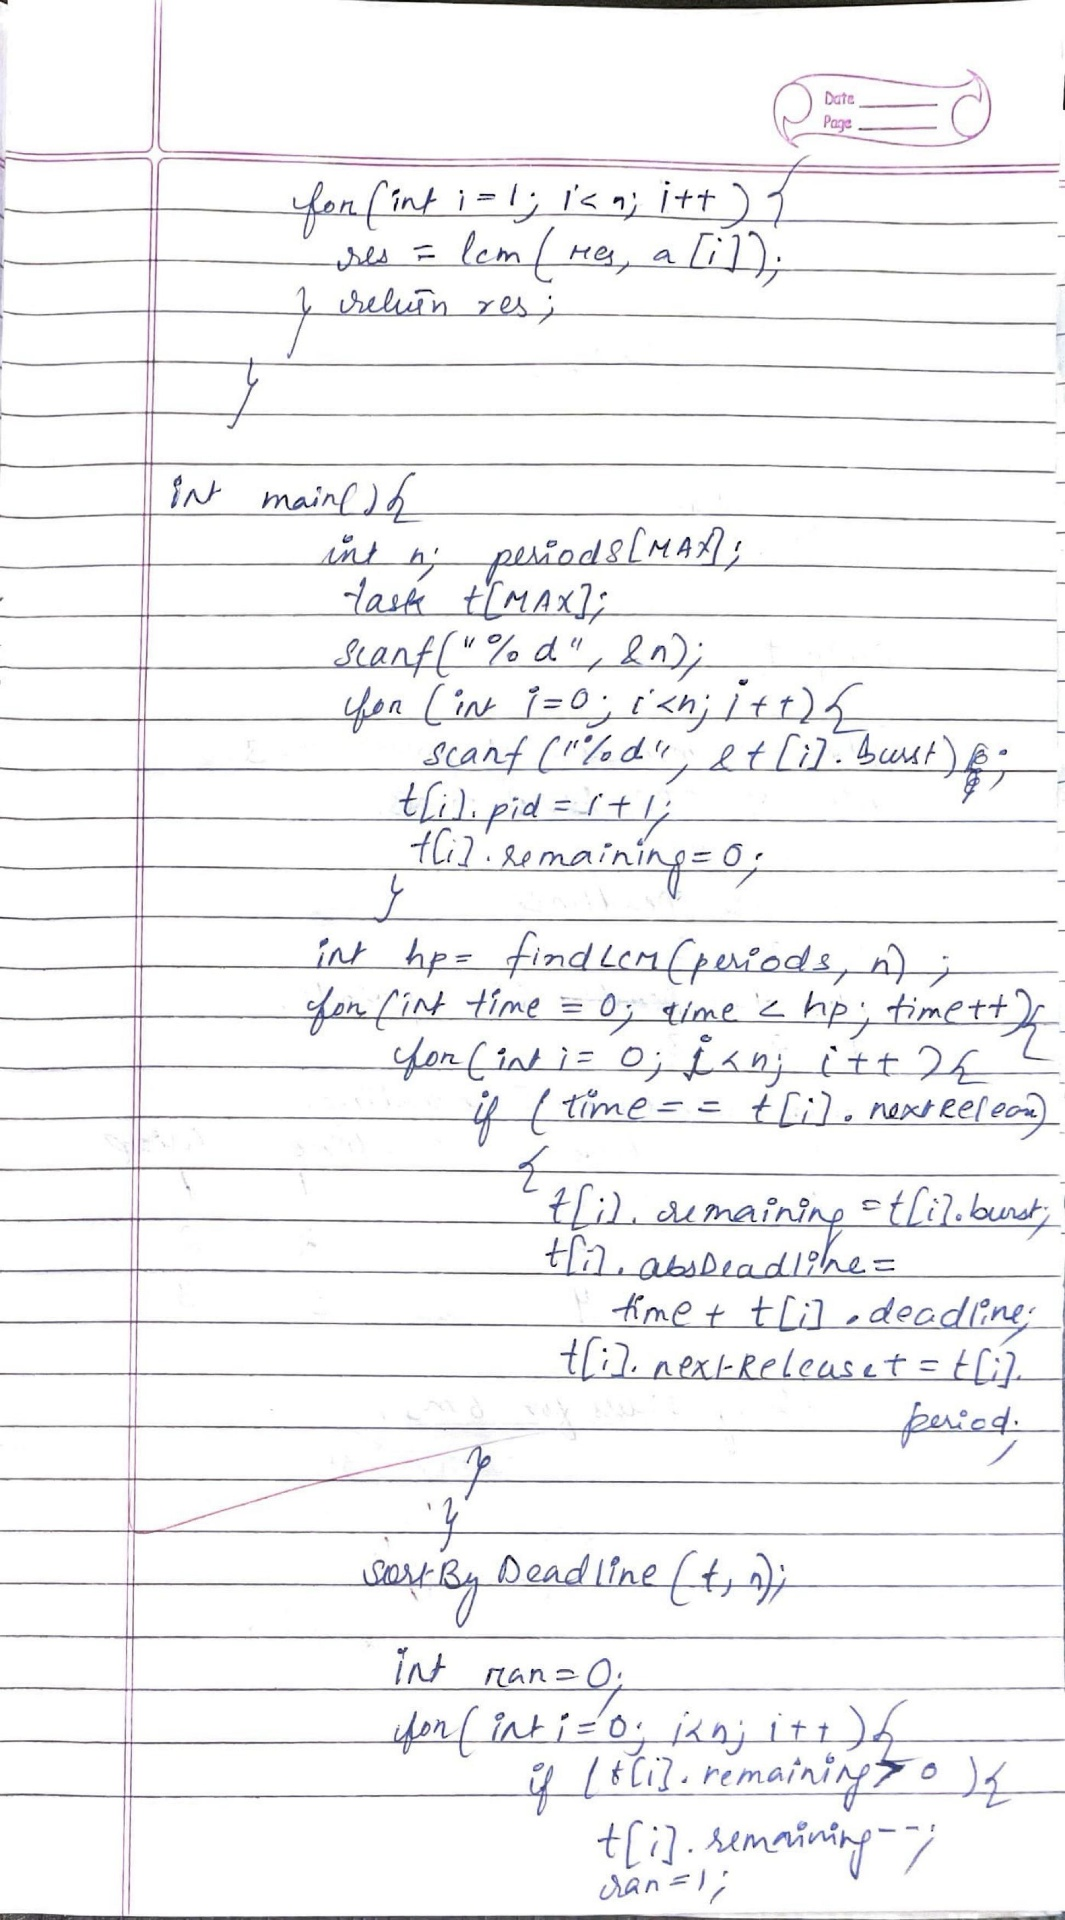 Date
Page
for(int i=1; i<n; i++){
res = lcm(res, a[i]);
} return res;
}
int main(){
int n; periods[MAX];
task t[MAX];
scanf("%d", &n);
for (int i=0; i<n; i++){
scanf("%d", &t[i].burst);
t[i].pid = i+1;
t[i].remaining=0;
}
int hp= findLCM(periods, n);
for(int time = 0; time < hp; time++){
for(int i= 0; i<n; i++){
if (time== t[i].nextRelease)
{
t[i].remaining =t[i].burst;
t[i].absDeadline=
time+ t[i].deadline;
t[i].nextRelease+=t[i].
period;
}
}
sortByDeadline(t, n);
int ran=0;
for(int i=0; i<n; i++){
if (t[i].remaining>0){
t[i].remaining--;
ran=1;